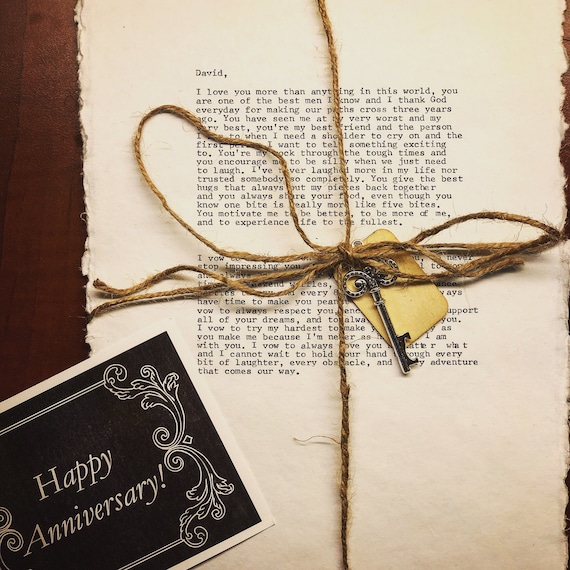 David,
I love you more than anything in this world, you
are one of the best men I know and I thank God
everyday for making our paths cross three years
ago. You have seen me at my very worst and my
very best, you're my best friend and the person
to when I need a shoulder to cry on and the
first person I want to tell something exciting
to. You're my rock through the tough times and
you encourage me to be silly when we just need
to laugh. I've never laughed more in my life nor
trusted somebody so completely. You give the best
hugs that always put my pieces back together
and you always share your food, even though you
know one bite is really more like five bites.
You motivate me to be better, to be more of me,
and to experience life to the fullest.
I vow to never
stop impressing you
weekend
have time to make you
vow to always respect you, and support
all of your dreams, and to always
I vow to try my hardest to make you as
you make me because I'm never as I am
with you. I vow to always love you no matter what
and I cannot wait to hold your hand through every
bit of laughter, every obstacle, and every adventure
that comes our way.
Happy
Anniversary!